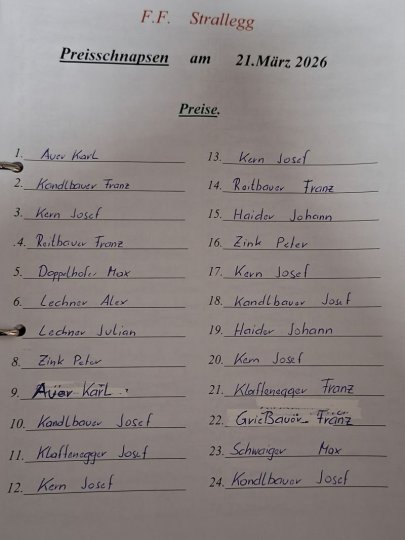 F.F. Strallegg
Preisschnapsen am 21.März 2026
Preise.
1. Auer Karl
2. Kandlbauer Franz
3. Kern Josef
4. Reitbauer Franz
5. Doppelhofer Max
6. Lechner Alex
Lechner Julian
8. Zink Peter
9. Auer Karl
10. Kandlbauer Josef
11. Klaffenegger Josef
12. Kern Josef
13. Kern Josef
14. Reitbauer Franz
15. Haider Johann
16. Zink Peter
17. Kern Josef
18. Kandlbauer Josef
19. Haider Johann
20. Kern Josef
21. Klaffenegger Franz
22. Grießauer Franz
23. Schwaiger Max
24. Kandlbauer Josef